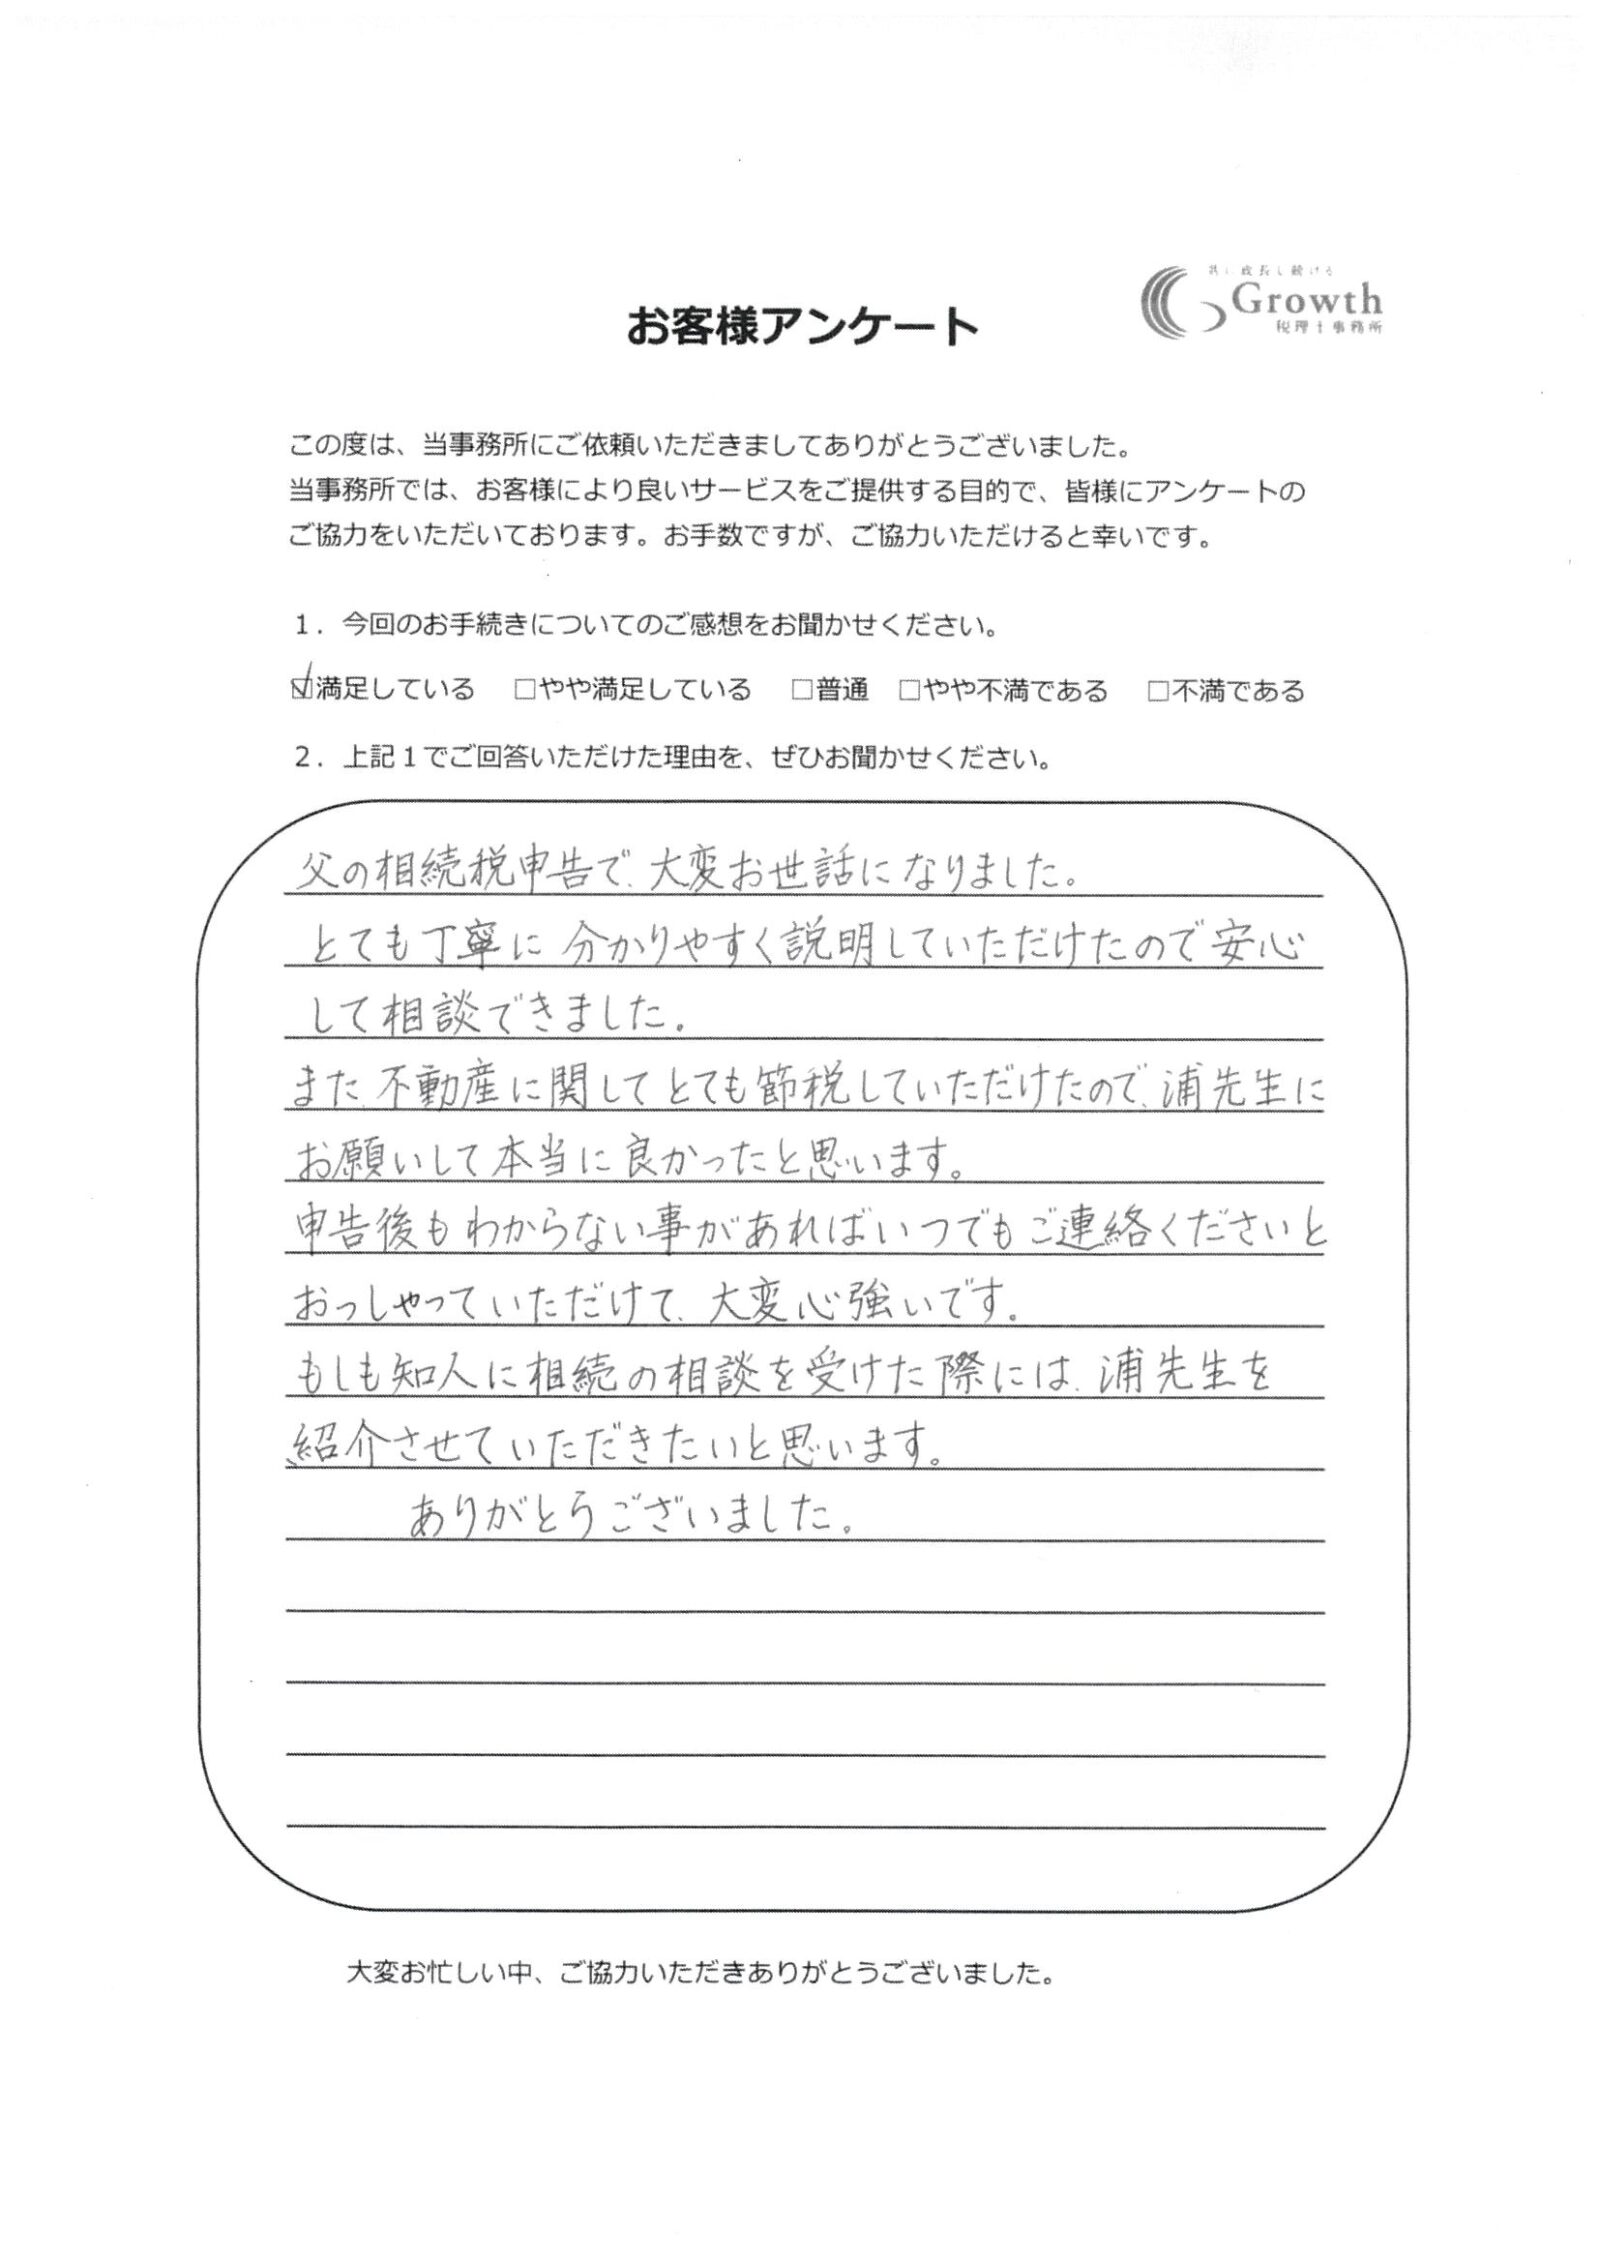 共に成長し続ける
Growth
税理士事務所
お客様アンケート
この度は、当事務所にご依頼いただきましてありがとうございました。
当事務所では、お客様により良いサービスをご提供する目的で、皆様にアンケートの
ご協力をいただいております。お手数ですが、ご協力いただけると幸いです。
1．今回のお手続きについてのご感想をお聞かせください。
☑満足している　□やや満足している　□普通　□やや不満である　□不満である
2．上記1でご回答いただけた理由を、ぜひお聞かせください。
父の相続税申告で、大変お世話になりました。
とても丁寧に分かりやすく説明していただけたので安心
して相談できました。
また、不動産に関してとても節税していただけたので、浦先生に
お願いして本当に良かったと思います。
申告後もわからない事があればいつでもご連絡くださいと
おっしゃっていただけて、大変心強いです。
もしも知人に相続の相談を受けた際には、浦先生を
紹介させていただきたいと思います。
ありがとうございました。
大変お忙しい中、ご協力いただきありがとうございました。